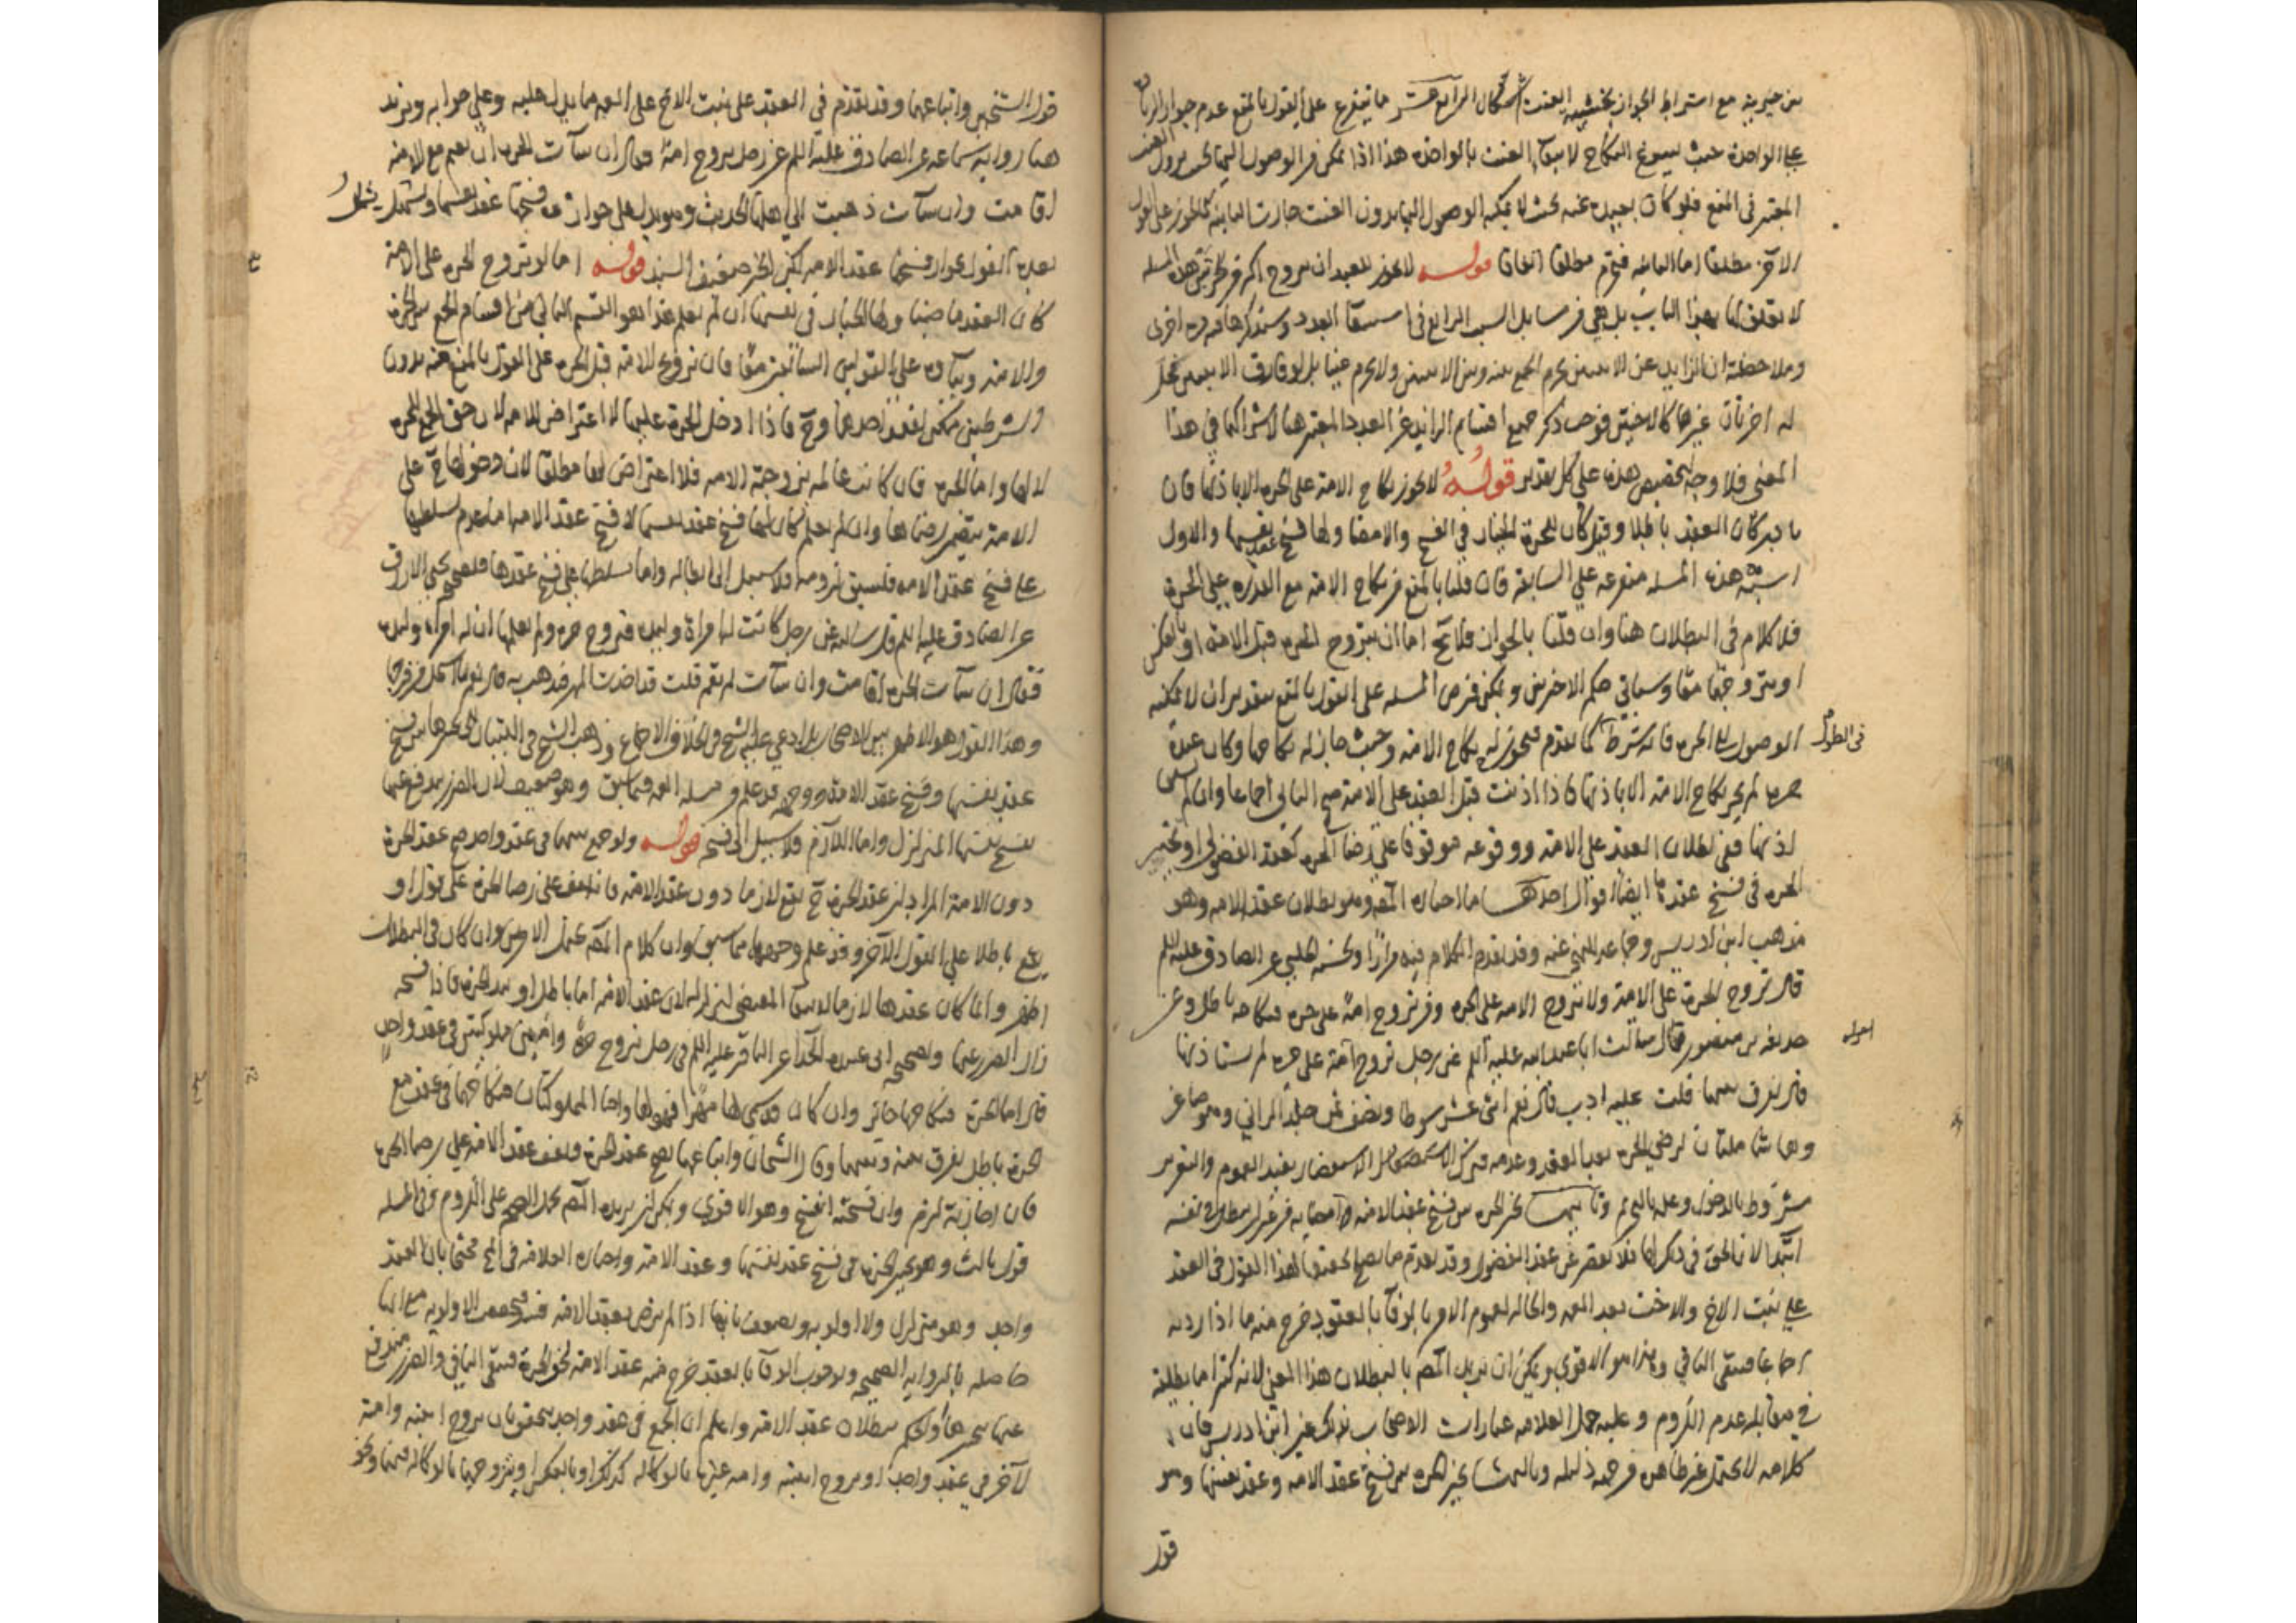 من حيث مع اشتراط الجواز بخشية العنت الرابع عشر مما يتفرع على القول بالمنع عدم جواز الزيادة
على الواحدة حيث يسوغ النكاح لانتفاء العنت بالواحدة هذا اذا تمكن من الوصول اليها بحيث يزول العنت
المعتبر في المنع فلو كانت بعيدة عنه بحيث لا يمكنه الوصول اليها بدون العنت جازت الثانية كالحرة على القول
الآخر مطلقا اما الثالثة فتحرم مطلقا اتفاقا قوله لا يجوز للعبد ان يتزوج اكثر من حرتين هذه المسئلة
لا تعلق لها بهذا الباب بل هي من مسايل السبب الرابع في استيفاء العدد وسنذكرها فيه مرة اخرى
وملاحظة ان الزايد عن الاثنتين يحرم الجمع بينه وبين الاثنتين ولا يحرم عينا بل لو فارق الاثنتين تحل
له اخرتان غيرها كالاختين فوجب ذكر جميع اقسام الزايد عن العدد المعتبر هنا لاشتراكها في هذا
المعنى فلا وجه لتخصيص هذه على كل تقدير قوله لا يجوز نكاح الامة على الحرة الا باذنها فان
بادر كان العقد باطلا وقيل كان للحرة الخيار في الفسخ والامضاء ولها فسخ عقد نفسها والاول
اشبه هذه المسئلة متفرعة على السابقة فان قلنا بالمنع من نكاح الامة مع القدرة على الحرة
فلا كلام في البطلان هنا وان قلنا بالجواز فلا يخ اما ان يتزوج الحرة قبل الامة او بالعكس
او يتزوجهما معا وسياتي حكم الاخرين ويمكن فرض المسئلة على القول بالمنع بتقدير ان لا يمكنه
الوصول الى الحرة فانه شرط في الطول كما تقدم فيجوز له نكاح الامة وحيث جاز له نكاحها وكان عنده
حرة لم يجز نكاح الامة الا باذنها فاذا اذنت قبل العقد على الامة صح الثاني اجماعا وان لم يسبق
اذنها ففي بطلان العقد على الامة او وقوعه موقوفا على رضا الحرة كعقد الفضولي او تخير
الحرة في فسخ عقدها ايضا اقوال احدها ما اختاره المصنف وهو بطلان عقد الامة وهو
مذهب ابن ادريس وجماعة للنهي عنه وقد تقدم الكلام فيه مرارا ولحسنة الحلبي عن الصادق عليه السلم
قال تزوج الحرة على الامة ولا تزوج الامة على الحرة ومن تزوج امة على حرة فنكاحه باطل وعن
حذيفة بن منصور قال سالت ابا عبد الله عليه السلم عن رجل تزوج امة على حرة لم يستاذنها
قال يفرق بينهما قلت عليه ادب قال نعم اثنى عشر سوطا ونصف ثمن حد الزاني وهو صاغر
وهما شاملتان لرضى الحرة بعد العقد وعدمه فترك الاستفصال يفيد العموم والتعزير
مشروط بالدخول وعلمه بالتحريم وثانيها تخير الحرة بين فسخ عقد الامة وامضائه من غير ان يبطل في نفسه
ابتداء لان الحق في ذلك لها فلا يقصر عن عقد الفضولي وقد تقدم ما يصلح تحقيقا لهذا القول في العقد
على بنت الاخ والاخت بعد العمة والخالة لعموم الامر بالوفاء بالعقود خرج منه ما اذا ردته
اجماعا فيبقى الباقي وهذا هو الاقوى ويمكن ان يريد المصنف بالبطلان هذا المعنى لانه كثيرا ما يطلقه
في مقابلة عدم اللزوم وعليه حمل العلامة عبارات الاصحاب بذلك غير ابن ادريس فان
كلامه لا يحتمل غير ظاهره من جهة دليله وثالثها تخير الحرة بين فسخ عقد الامة وعقد نفسها وهو
قول
قول الشيخين واتباعهما وقد تقدم في العقد على بنت الاخ على العمة ما يدل عليه وعلى جوابه ونزيد
هنا رواية سماعة عن الصادق عليه السلم عن رجل يتزوج امة فقال ان شاءت الحرة ان تقيم مع الامة
اقامت وان شاءت ذهبت الى اهلها الحديث وهو يدل على جواز فسخها عقد نفسها
بعده القول بجواز فسخها عقد الامة لكن الخبر ضعيف السند قوله اما لو تزوج الحرة على الامة
كان العقد ماضيا ولها الخيار في نفسها ان لم تعلم هذا هو القسم الثاني من اقسام الجمع بين الحرة
والامة وبناؤه على القولين السابقين معا فان تزويج الامة قبل الحرة على القول بالمنع منه بدون
الشرطين يمكن لفقد احدهما وح فاذا ادخل الحرة عليها لا اعتراض للامة لان حق الجمع للحرة
لا لها واما الحرة فان كانت عالمة بزوجية الامة فلا اعتراض لها مطلقا لان دخولها ح على
الامة يقتضي رضاها وان لم تعلم كان لها فسخ عقد نفسها لا فسخ عقد الامة اما عدم تسلطها
على فسخ عقد الامة فلسبق لزومه فلا سبيل الى ابطاله واما تسلطها على فسخ عقدها فلصحيحة يحيى الازرق
عن الصادق عليه السلم قال سالته عن رجل كانت له امراة وليدة فتزوج حرة ولم يعلمها ان له امراة وليدة
فقال ان شاءت الحرة اقامت وان شاءت لم تقم قلت قد اخذت المهر فذهب به قال نعم بما استحل من فرجها
وهذا القول هو الاظهر بين الاصحاب بل ادعى عليه الشيخ في الخلاف الاجماع وذهب الشيخ في التبيان الى تخيرها بين فسخ
عقد نفسها وفسخ عقد الامة ووجهه قد علم من مسئلة العمة فيما سبق وهو ضعيف لان الضرر يندفع عنها
بفسخ عقدها المتزلزل واما اللازم فلا سبيل الى فسخه قوله ولو جمع بينهما في عقد واحد صح عقد الحرة
دون الامة المراد ان عقد الحرة ح يقع لازما دون عقد الامة فانه يقف على رضا الحرة على قول او
يقع باطلا على القول الآخر وقد علم وجههما مما سبق وان كلام المصنف يحتمل الامرين وان كان في البطلان
اظهر وانما كان عقدها لازما لانتفاء المقتضي لتزلزله لان عقد الامة اما باطل او بيد الحرة فاذا فسخته
زال الضرر عنها ولصحيحة ابي عبيدة الحذاء عن الباقر عليه السلم في رجل تزوج حرة وامتين مملوكتين في عقد واحد
قال اما الحرة فنكاحها جائز وان كان قد سمى لها مهرا فهو لها واما المملوكتان فنكاحهما في عقد مع
الحرة باطل يفرق بينه وبينهما وقال الشيخان واتباعهما يصح عقد الحرة ويقف عقد الامة على رضا الحرة
فان اجازته لزم وان فسخته انفسخ وهو الاقوى ويمكن ان يريده المصنف بحمل الصحة على اللزوم وفي المسئلة
قول ثالث وهو تخير الحرة في فسخ عقد نفسها وعقد الامة واختاره العلامة في المختلف محتجا بان العقد
واحد وهو متزلزل ولا اولوية ويضعف بانها اذا لم ترض بعقد الامة فسخته والاولوية مع انها
حاصلة بالرواية الصحيحة ولوجوب الوفاء بالعقد خرج منه عقد الامة لحق الحرة فيبقى الباقي والضرر مندفع
عنها بتخيرها والحكم ببطلان عقد الامة واعلم ان الجمع في عقد واحد يتحقق بان يزوج ابنته وامته
لآخر في عقد واحد او يزوج ابنته وامة غيره بالوكالة كذلك او بالعكس او يتزوجهما بالوكالة فيهما ونحو